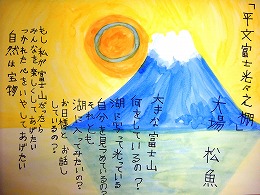 「平文富士光々之棚」
大場 松魚
大きな富士山
何をしているの?
湖に写って光っている
自分を見つめているの?
それとも
湖に入ってみたいの?
お日様とお話し
しているの?
もし私が富士山だったら
みんなを楽しくしてあげたい
つかれた心をいやしてあげたい
自然は宝物